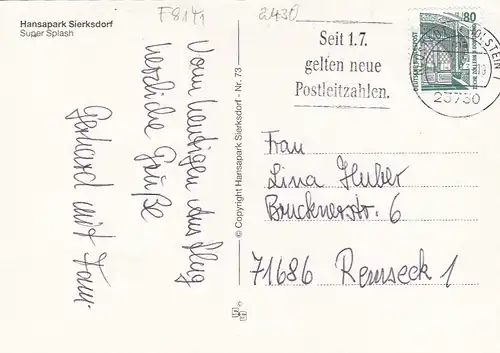 Hansapark Sierksdorf
Super Splash
F8141
2430
Vom heutigen Ausflug
herzliche Grüße
Gerhard mit Fam.
© Copyright Hansapark Sierksdorf - Nr. 73
Seit 1.7.
gelten neue
Postleitzahlen.
80
23730
Frau
Lina Huber
Brucknerstr. 6
71686 Remseck 1